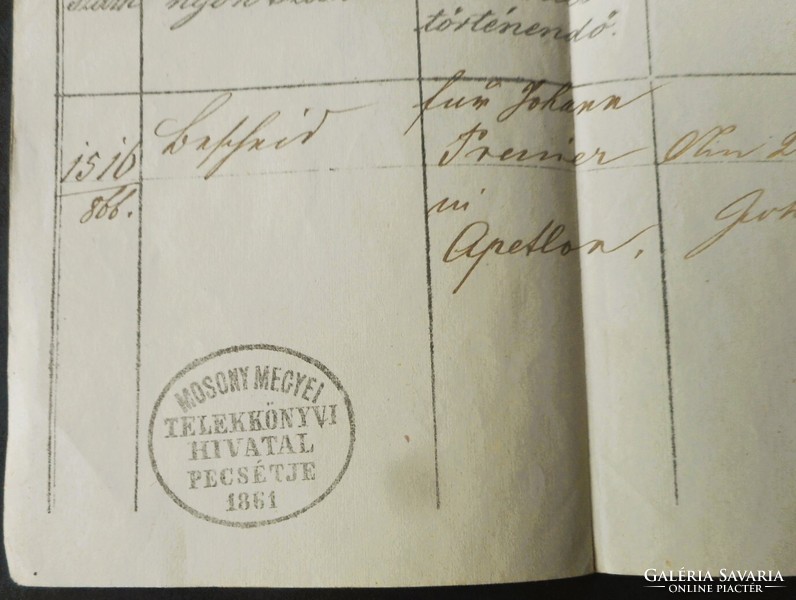 szám
történendő.
für Johann
Bescheid
1516 Premier
866.
in
Apetlon,
MOSONY MEGYEI
TELEKKÖNYVI
HIVATAL
PECSÉTJE
1861
GALÉRIA SAVARIA
ONLINE PIACTÉR